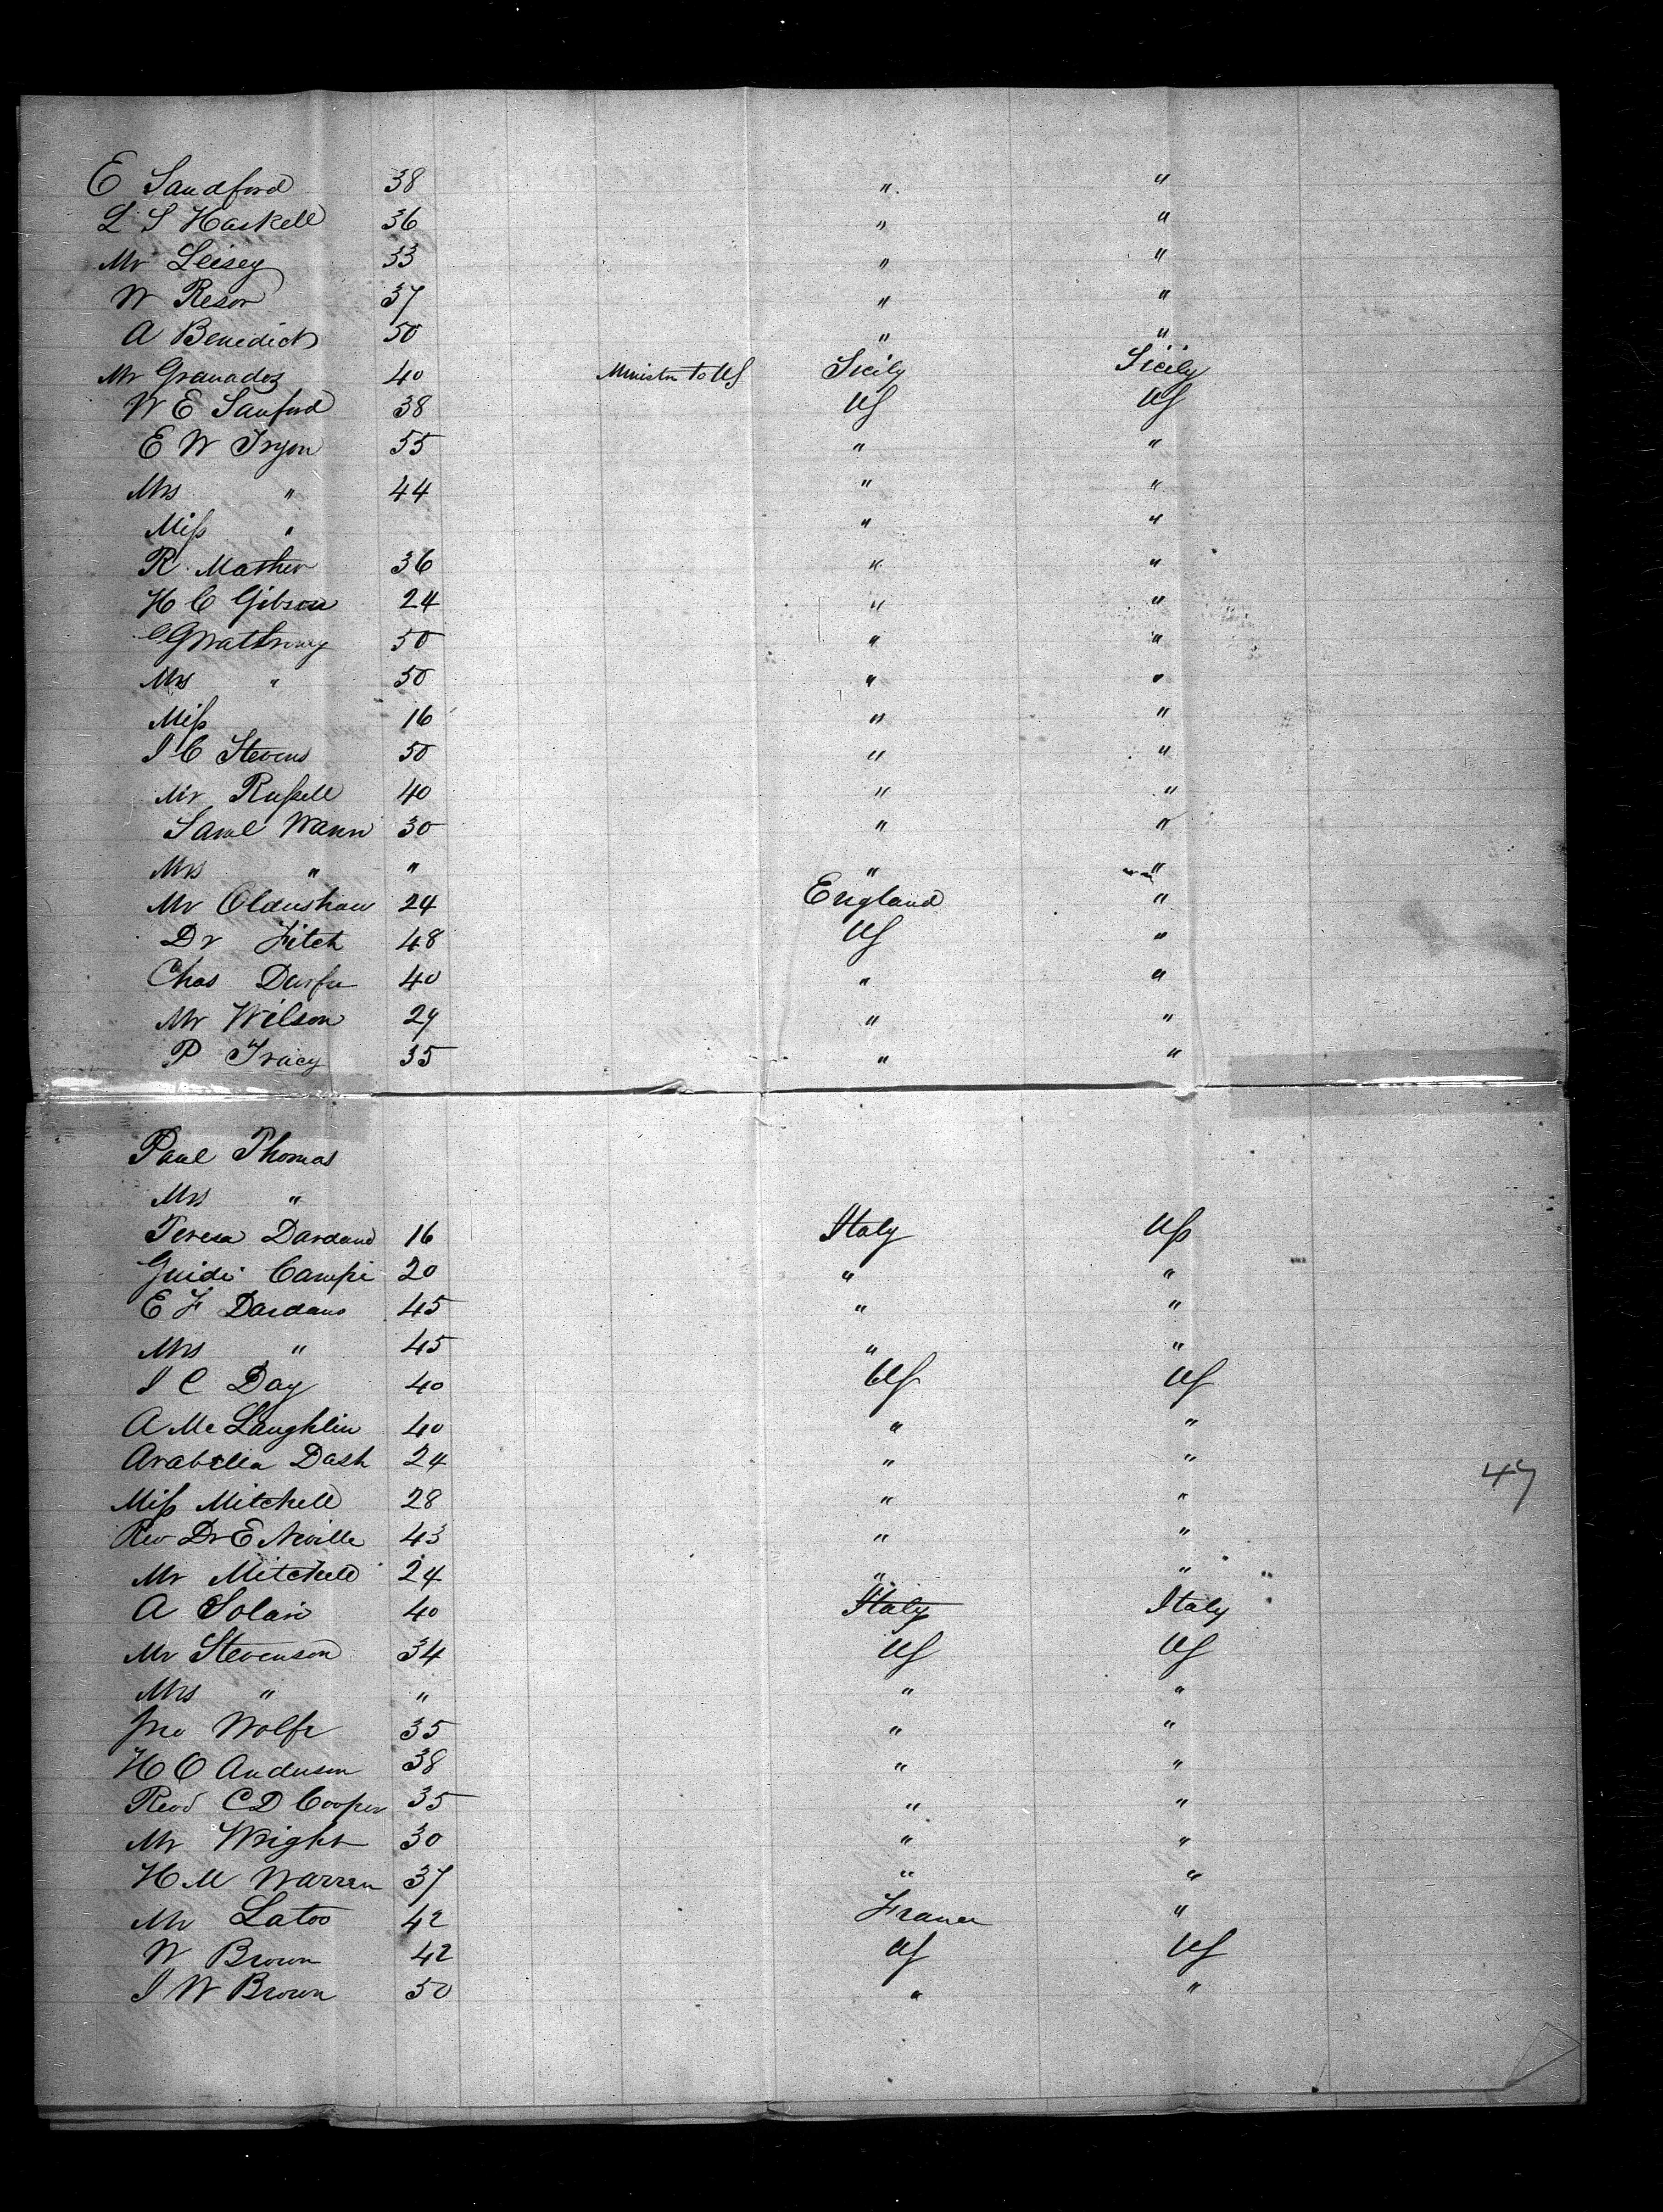 E Sandford 38 " "
L S Haskell 36 " "
Mr Leisey 33 " "
W Resor 37 " "
A Benedict 50 " "
Mr Granados 40 Minister to US Sicily Sicily
W E Sanford 38 US US
E W Tryon 55 " "
Mrs " 44 " "
Miss " " "
R Mather 36 " "
H C Gibson 24 " "
50 " "
Mrs " 50 " "
Miss 16 " "
I C Stevens 50 " "
Mr Russell 40 " "
Saml Wann 30 " "
Mrs " " " "
Mr Oldershaw 24 England "
Dr Fitch 48 US "
Chas Durfee 40 " "
Mr Wilson 29 " "
P Tracy 35 " "
Paul Thomas
Mrs "
Teresa Dardano 16 Italy US
Guidi Campi 20 " "
E F Dardano 45 " "
Mrs " 45 " "
I C Day 40 US US
A McLaughlin 40 " "
Arabella Dash 24 " "
47
Miss Mitchell 28 " "
Rev Dr E Neville 43 " "
Mr Mitchell 24 " "
A Solari 40 Italy Italy
Mr Stevenson 34 US US
Mrs " " " "
Jno Wolfe 35 " "
H O Anderson 38 " "
Revd C D Cooper 35 " "
Mr Wright 30 " "
H M Warren 37 " "
Mr Latoo 42 France "
W Brown 42 US US
I W Brown 50 " "